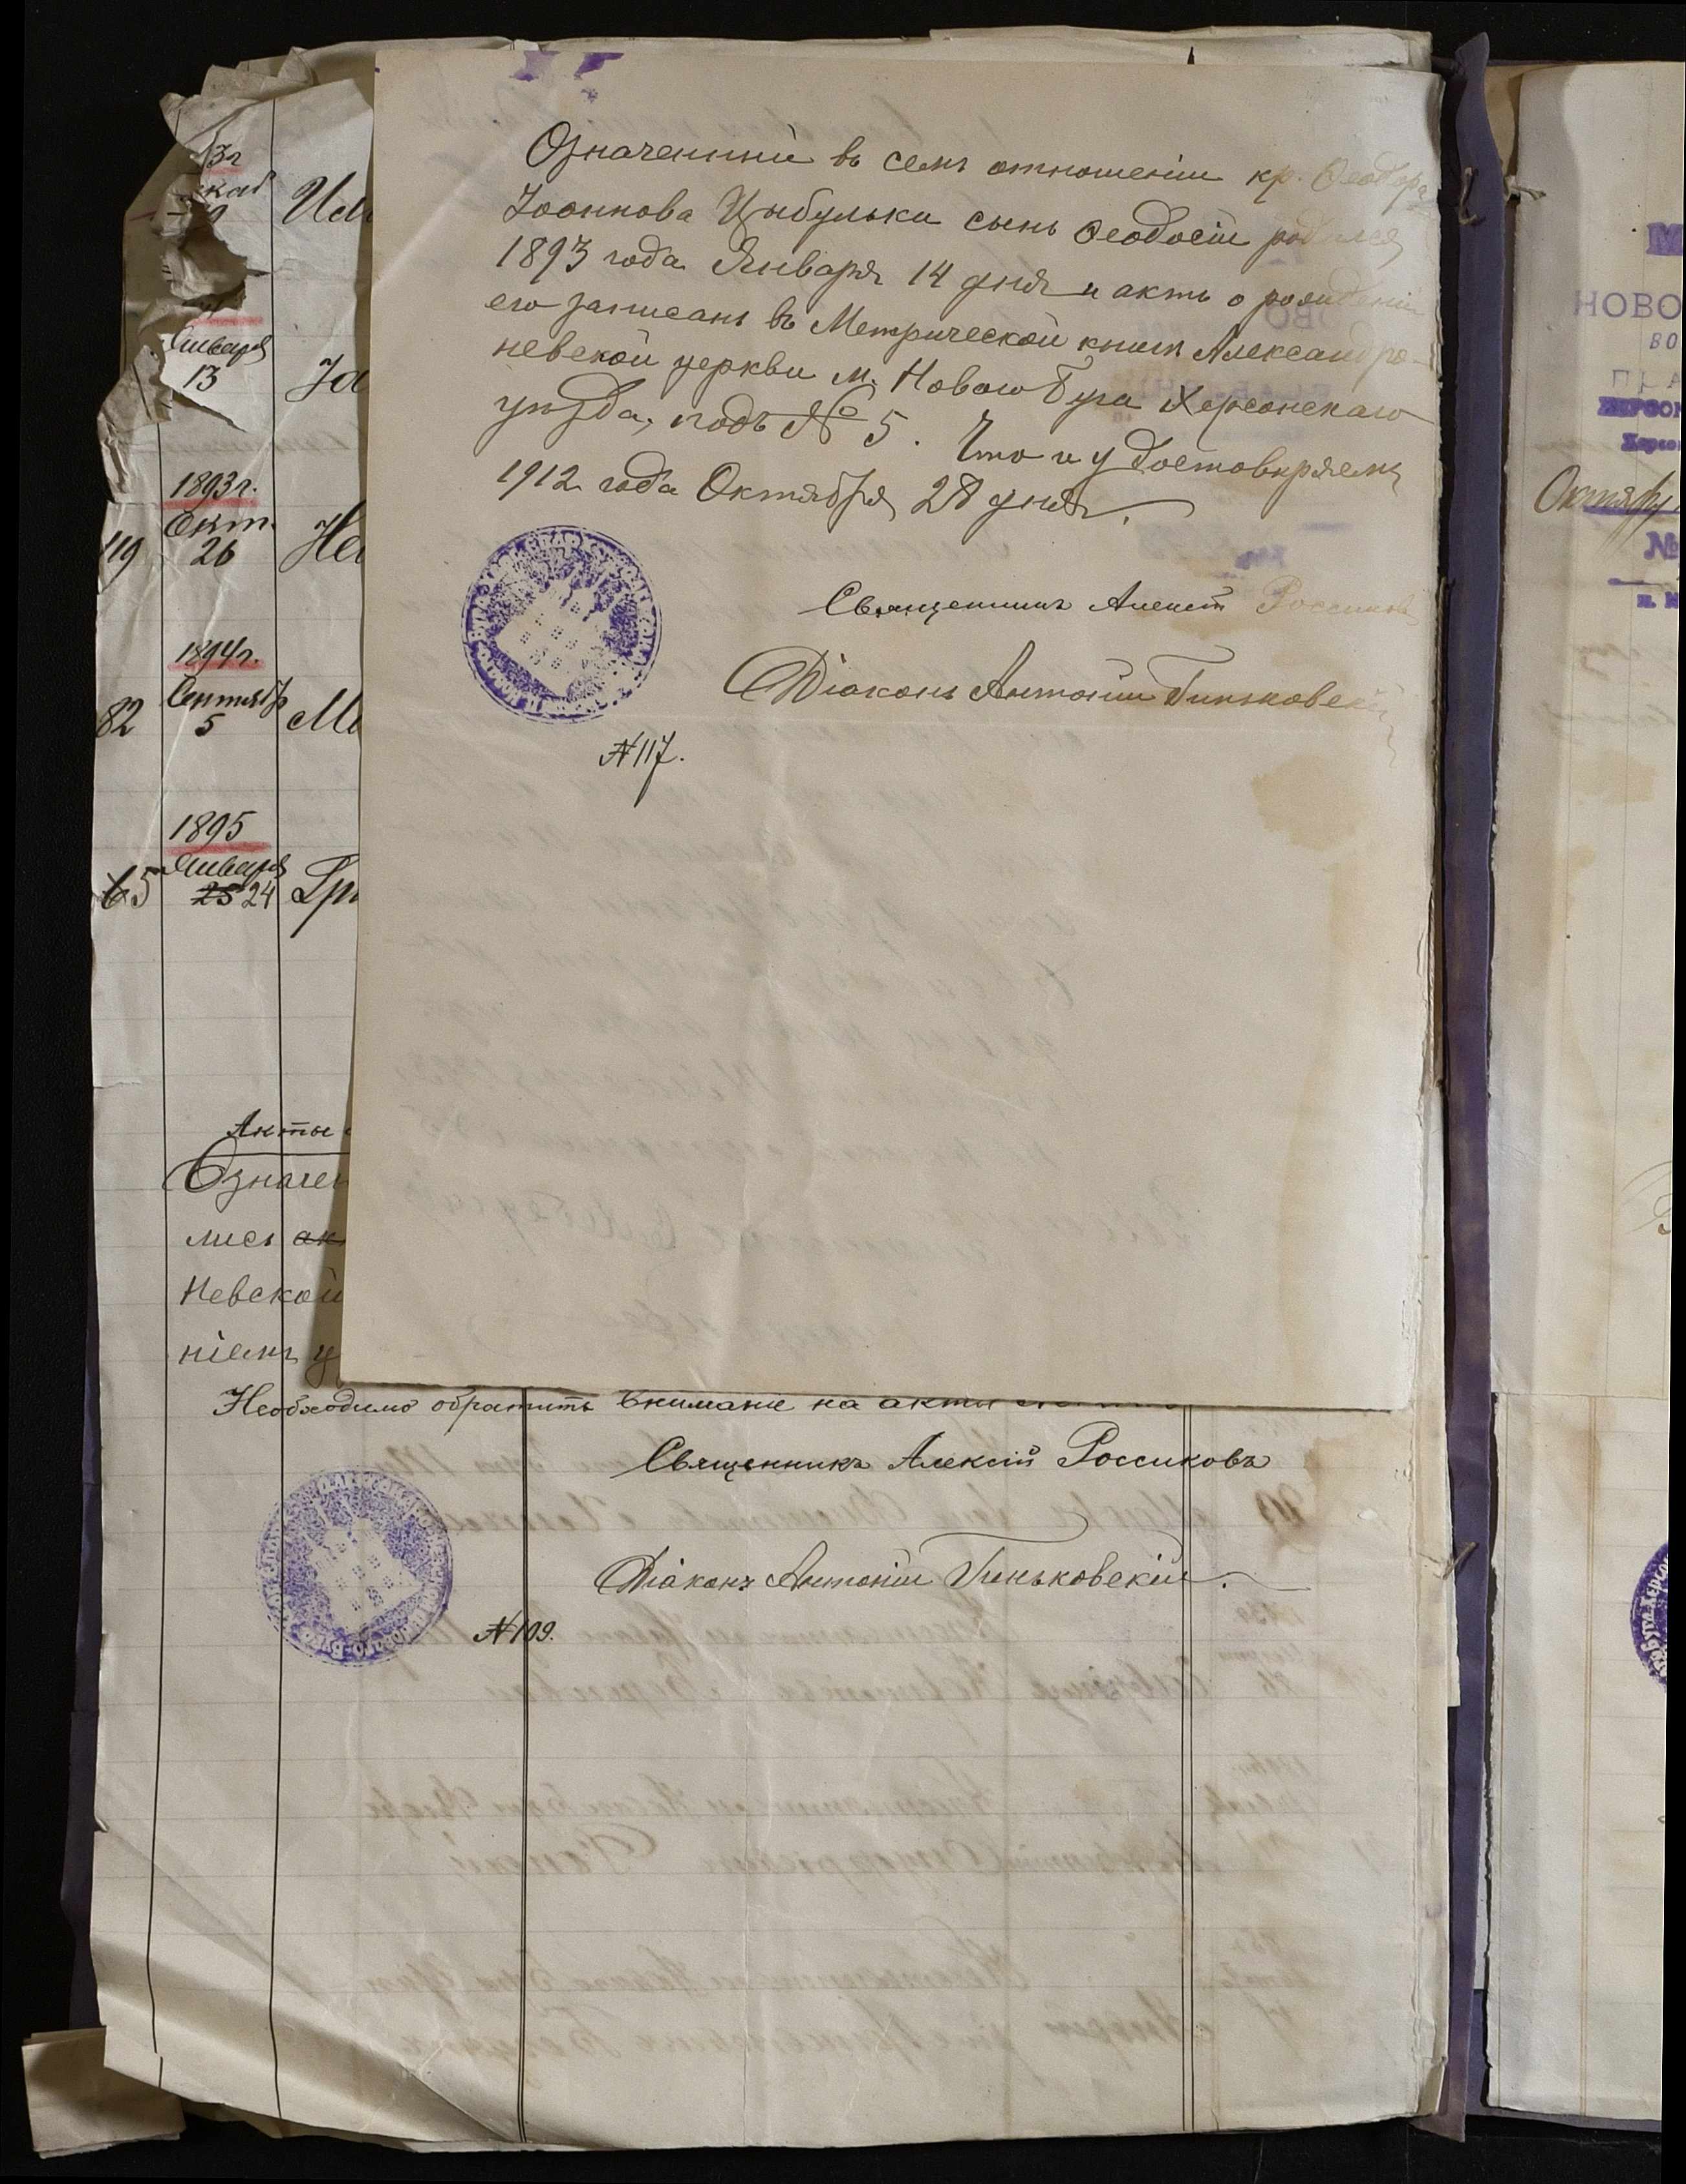 Означенный въ семъ отношеніи кр. Ѳеодора
Іоаннова Цыбульки сынъ Ѳеодосій родился
1893 года Января 14 дня и актъ о рожденіи
его записанъ въ Метрической книгѣ Александро-
невской церкви м. Новаго Буга Херсонскаго
уѣзда, подъ № 5. Что и удостовѣряемъ
1912 года Октября 28 дня.
Священникъ Алексій Россиковъ
Діаконъ Антоній Гиньковскій
№ 117.
Января
13
1893 г.
Окт.
119 26
1894 г.
Сентябр
82 5
1895
Января
65 25 24
Акты
Означен
лись ак
Невской
ніемъ у
Необходимо обратить вниманіе на акты
Священникъ Алексій Россиковъ
Діаконъ Антоній Гиньковскій.
№ 109.
НОВО
ВО
ПРА
ХЕРСОН
Херсо
Октябр
№